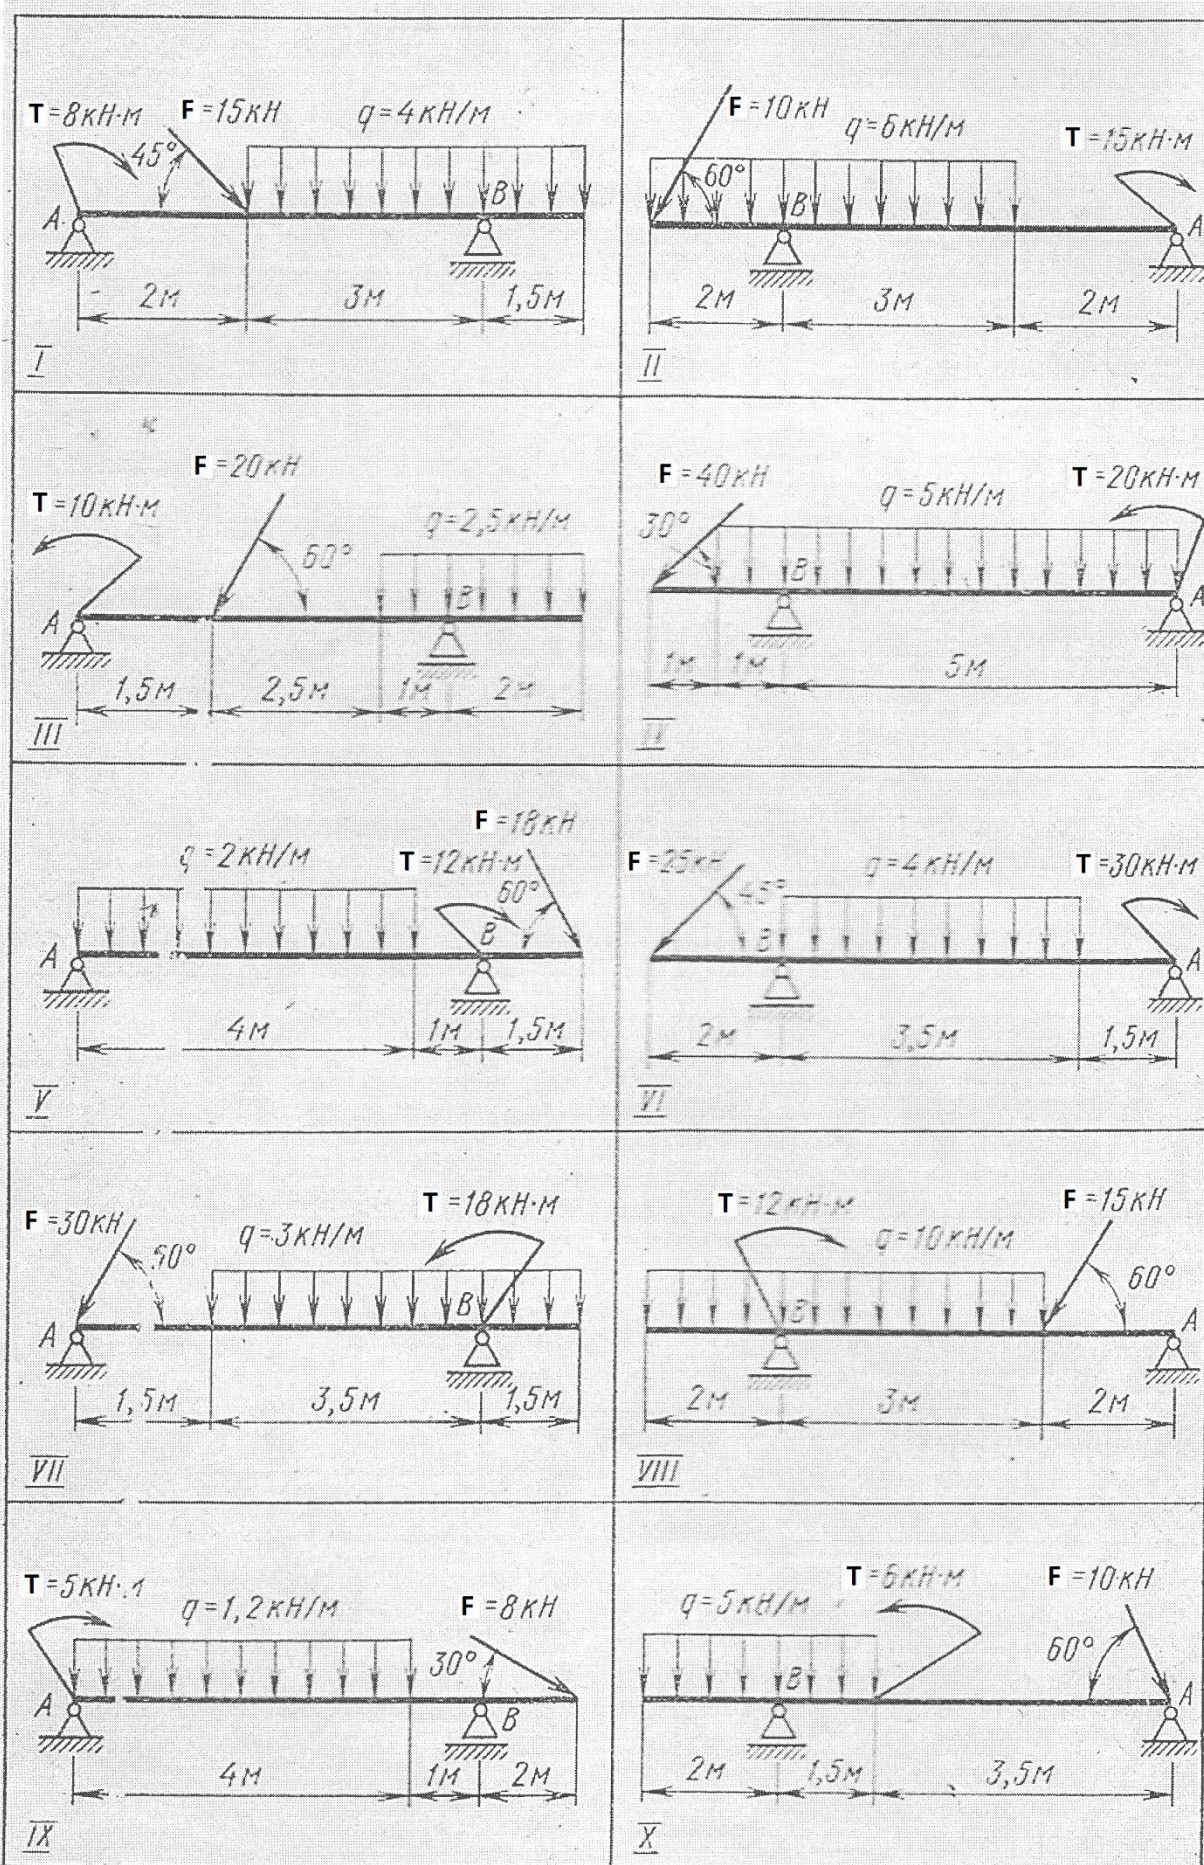 T=8кН·м F=15кН q=4кН/м
45°
A B
2м 3м 1,5м
I
F=10кН q=6кН/м T=15кН·м
60°
B A
2м 3м 2м
II
F=20кН
T=10кН·м q=2,5кН/м
60°
A B
1,5м 2,5м 1м 2м
III
F=40кН q=5кН/м T=20кН·м
30°
B A
1м 1м 5м
IV
F=18кН
q=2кН/м T=12кН·м
60°
A B
4м 1м 1,5м
V
F=25кН q=4кН/м T=30кН·м
45°
B A
2м 3,5м 1,5м
VI
F=30кН q=3кН/м T=18кН·м
A B
1,5м 3,5м 1,5м
VII
T=12кН·м q=10кН/м F=15кН
60°
B A
2м 3м 2м
VIII
T=5кН·м q=1,2кН/м F=8кН
30°
A B
4м 1м 2м
IX
q=5кН/м T=6кН·м F=10кН
60°
B A
2м 1,5м 3,5м
X